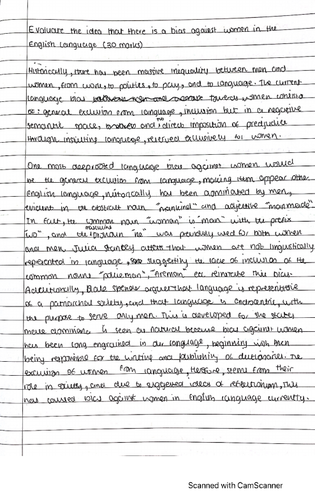 Evaluate the idea that there is a bias against women in the
English language (30 marks)
Historically, there has been massive inequality between men and
women, from work, to politics, to pay, and to language. The current
language bias towards women consists
of: general exclusion from language, inclusion but in a negative
semantic space, and the direct imposition of prejudices
through insulting language, reserved exclusively for women.
One most deeprooted language bias against women would
be the general exclusion from language, making them appear other.
English language, historically has been dominated by men,
evident in the abstract noun "mankind" and adjective "manmade".
In fact, the common noun "woman" is "man" with the prefix
"wo", and the masculine pronoun "he" was previously used for both women
and men. Julia Stanley that women are not linguistically
represented in language, suggesting the lack of inclusion of the
common nouns "policeman", "fireman" etc. reiterate this bias.
Additionally, Dale Spender argues that language is representative
of a patriarchal society, and that language is with
the purpose to serve only men. This is developed for she states
male dominance is seen as natural because bias against women
has been long engrained in our language, beginning with men
being responsible for the writing and publishing of dictionaries. The
exclusion of women from language, therefore, stems from their
role in society, and due to suggested ideas of This
has caused bias against women in English language currently.
Scanned with CamScanner